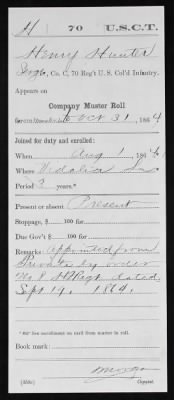 H 70 U.S.C.T.
Henry Hunter
Co. C, 70 Reg't U.S. Col'd Infantry.
Appears on
Company Muster Roll
for Oct 31, 1864
Joined for duty and enrolled:
When Aug 1, 186
Where Vidalia La
Period 3 years.*
Present or absent Present
Stoppage, $ 100 for
Due Gov't $ 100 for
Remarks: Appointed from
Private by order
No 8 Regt dated
Sept 19, 1864.
*See enrollment on card from muster in roll.
Book mark:
(358c)
Copyist.